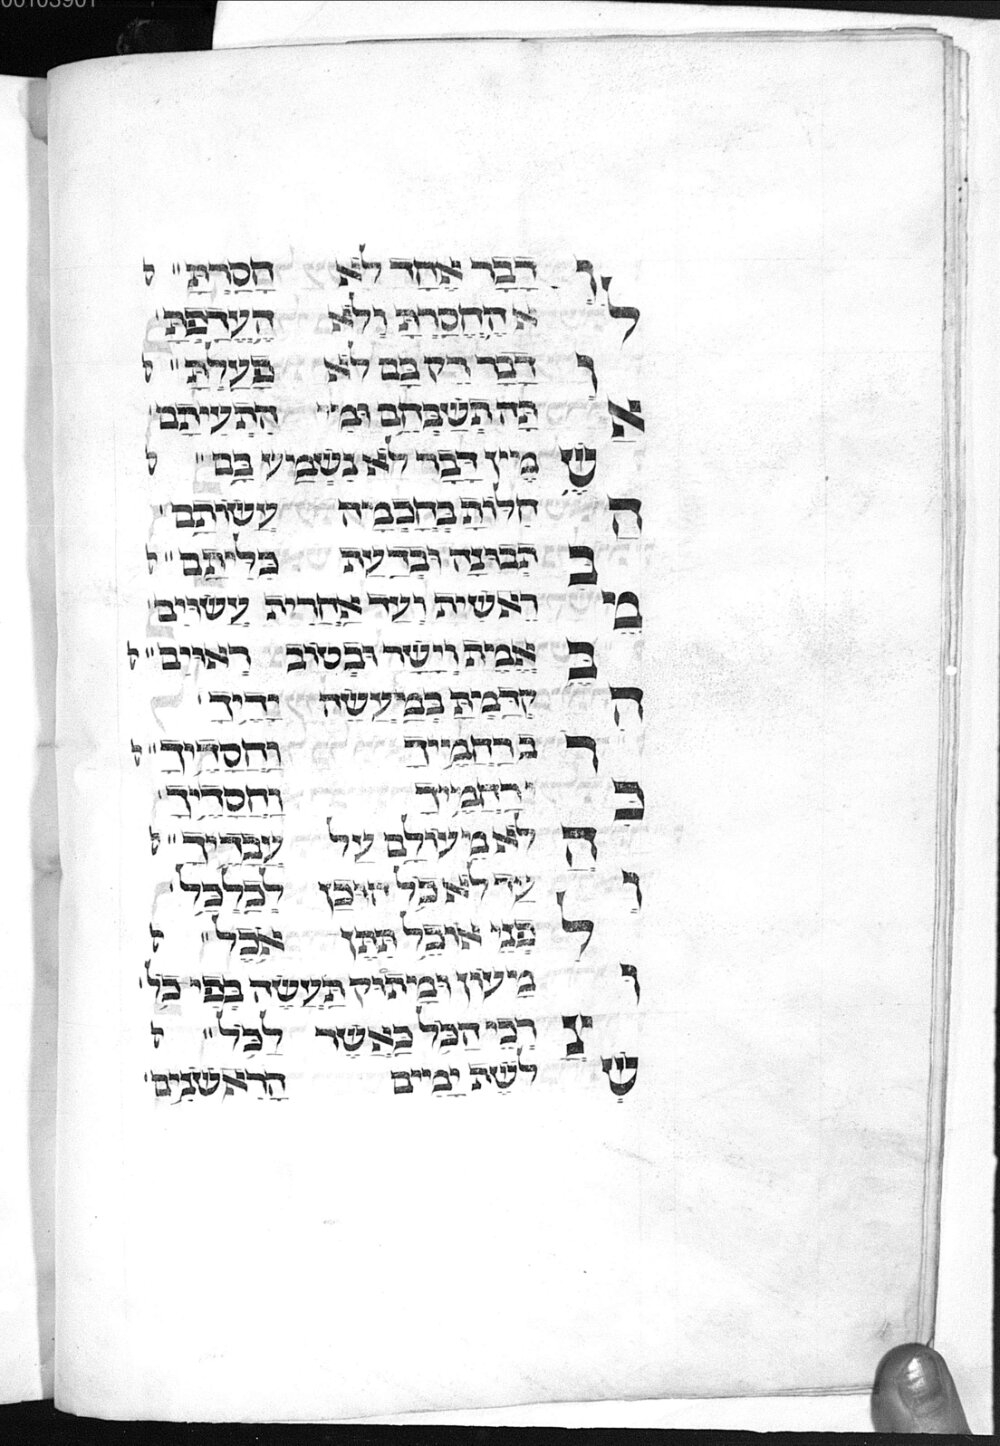 וְ דָבָר אֶחָד לֹא חִסַּרְתָּ׃ ל
לֹא הֶחְסַרְתָּ וְלֹא הֶעְדַּפְתָּ
וְ דָבָר רֵק בָּם לֹא פָּעַלְתָּ׃ ל
אַתָּה תְשַׁבְּחֵם וּמִי הִתְעִיתָם
שֶׁמִּין דָּבָר לֹא נִשְׁמַע בָּם׃ ל
הַחִלּוֹתָ בְּחָכְמָה עֲשׂוֹתָם
בִּתְבוּנָה וּבְדַעַת כִּלִּיתָם׃ ל
מֵרֵאשִׁית וְעַד אַחֲרִית עֲשׂוּיִם
בֶּאֱמֶת וְיֹשֶׁר וּבְטוֹב רְאוּיִם׃ ל
הִקְדַּמְתָּ בְמַעֲשֵׂה יָדֶיךָ
רֹב רַחֲמֶיךָ וַחֲסָדֶיךָ׃ ל
כִּי רַחֲמֶיךָ וַחֲסָדֶיךָ
הֲלֹא מֵעוֹלָם עַל עֲבָדֶיךָ׃ ל
וְעַד לֹא כָל הוּכַן לְכַלְכֵּל
לִפְנֵי אוֹכֵל תִּתֵּן אֹכֶל׃ ל
וּמָעוֹן וּמָתוֹק תַּעֲשֶׂה כְּפִי כֹל
צָרְכֵי הַכֹּל כַּאֲשֶׁר לַכֹּל׃ ל
שְׁלֹשֶׁת יָמִים הָרִאשֹׁנִים